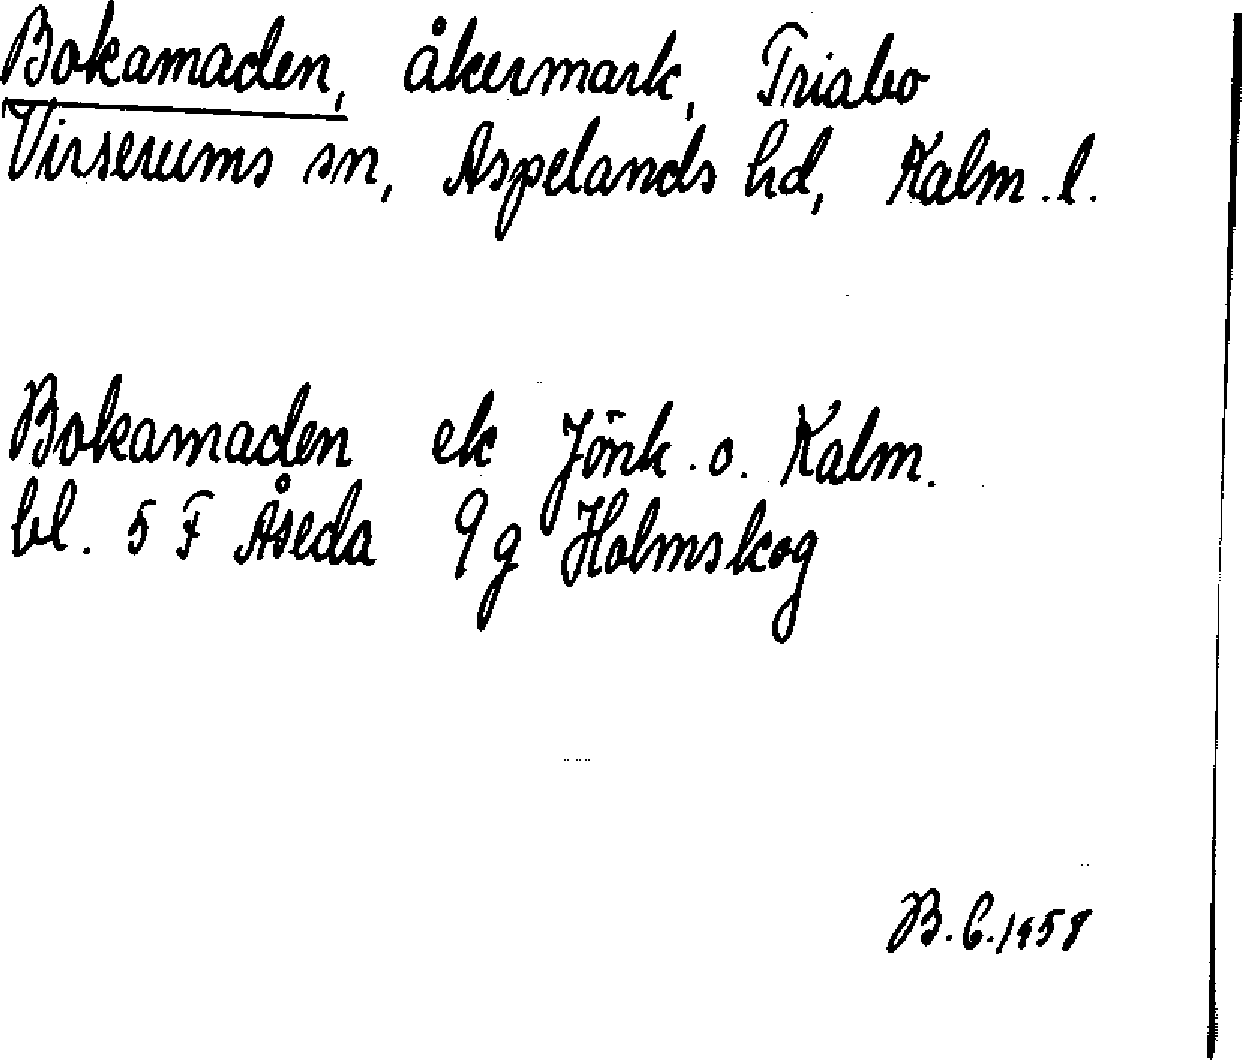 Bokamaden, åkermark, Triabo
Virserums sn, Aspelands hd, Kalm. l.
Bokamaden ek Jönk. o. Kalm.
bl. 5 F Åseda 9 g Holmskog
B. C. 1958